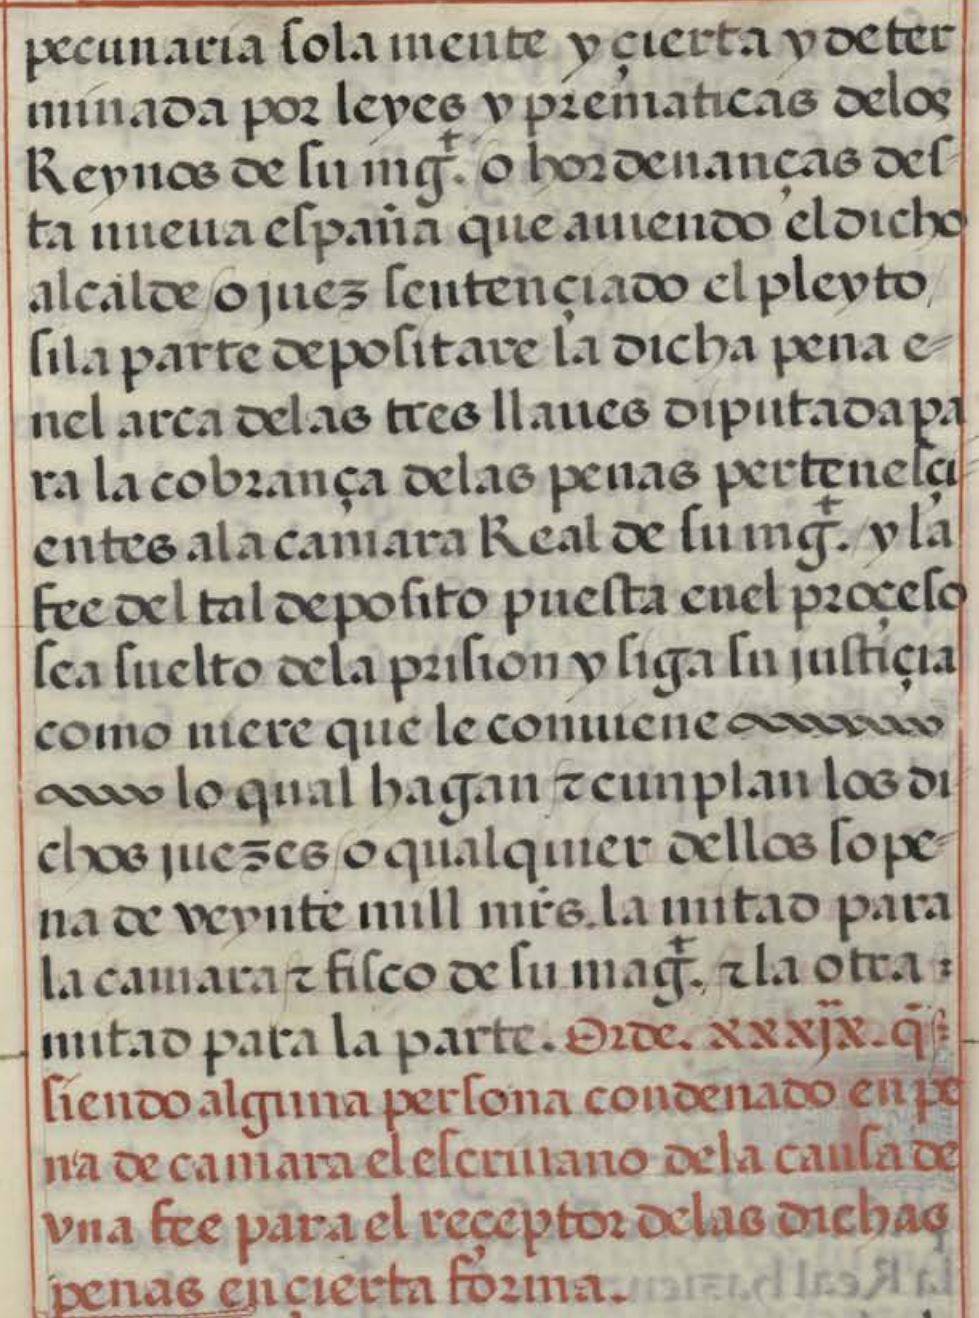 pecunaria sola mente y çierta y deter
minada por leyes y prematicas delos
Reynos de su mgt. o hordenanças des-
ta nueua españa que auiendo el dicho
alcalde / o juez sentençiado el pleyto /
sila parte depositare la dicha pena e-
nel arca delas tres llaues diputada pa
ra la cobrança delas penas pertenesçi-
entes ala camara Real de su mgt. / y la
fee del tal deposito puesta enel proçeso
sea suelto dela prision y siga su justiçia
como uiere que le conuiene
lo qual hagan / τ cunplan los di
chos juezes / o qualquier dellos so pe-
na de veynte mill mrs. la mitad para
la camara / τ fisco de su magt. / τ la otra :
mitad para la parte. Orde. xxxjx. q̃ :
siendo alguna persona condenado en pe
na de camara el escriuano dela causa de
vna fee para el reçeptor delas dichas
penas en çierta forma.